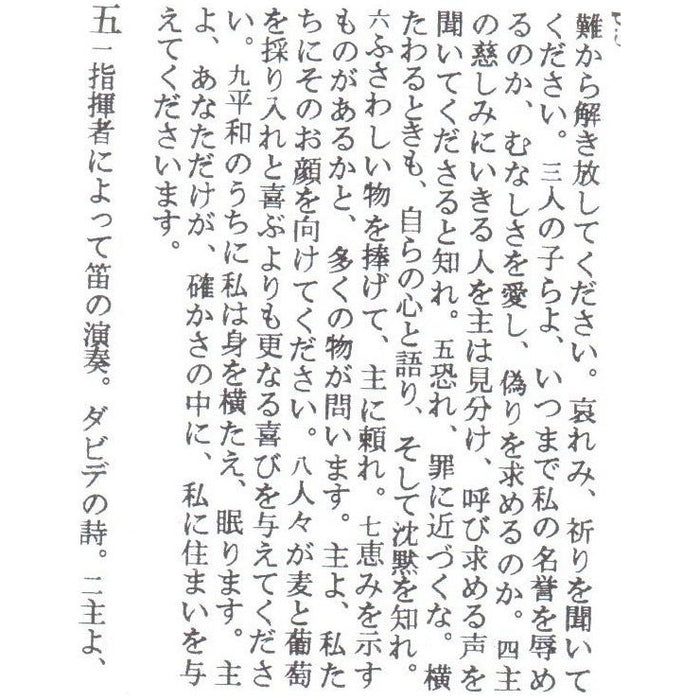 難から解き放してください。哀れみ、祈りを聞いて
ください。三人の子らよ、いつまで私の名誉を辱め
るのか、むなしさを愛し、偽りを求めるのか。四主
の慈しみにいきる人を主は見分け、呼び求める声を
聞いてくださると知れ。五恐れ、罪に近づくな。横
たわるときも、自らの心と語り、そして沈黙を知れ。
六ふさわしい物を捧げて、主に頼れ。七恵みを示す
ものがあるかと、多くの物が問います。主よ、私た
ちにそのお顔を向けてください。八人々が麦と葡萄
を採り入れと喜ぶよりも更なる喜びを与えてくださ
い。九平和のうちに私は身を横たえ、眠ります。主
よ、あなただけが、確かさの中に、私に住まいを与
えてくださいます。
五一指揮者によって笛の演奏。ダビデの詩。二主よ、